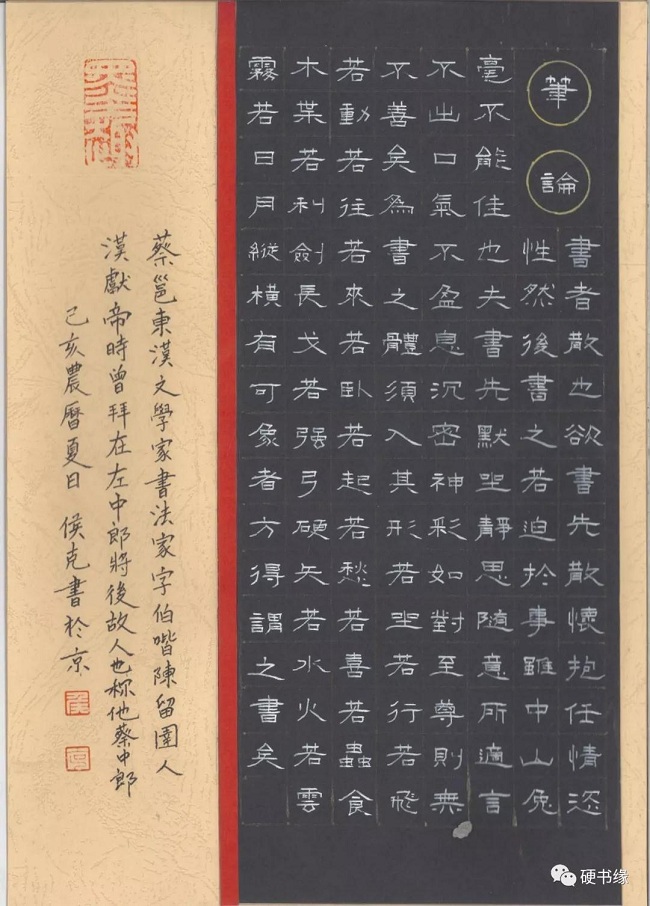 筆論
書者散也欲書先散懷抱任情恣
性然後書之若迫於事雖中山兔
毫不能佳也夫書先默坐靜思隨意所適言
不出口氣不盈息沉密神彩如對至尊則無
不善矣為書之體須入其形若坐若行若飛
若動若往若來若臥若起若愁若喜若蟲食
木葉若利劍長戈若强弓硬矢若水火若雲
霧若日月縱橫有可象者方得謂之書矣
蔡邕東漢文學家書法家字伯喈陳留圉人
漢獻帝時曾拜在左中郎將後故人也称他蔡中郎
己亥農曆夏日侯克書於京
侯
硬书缘